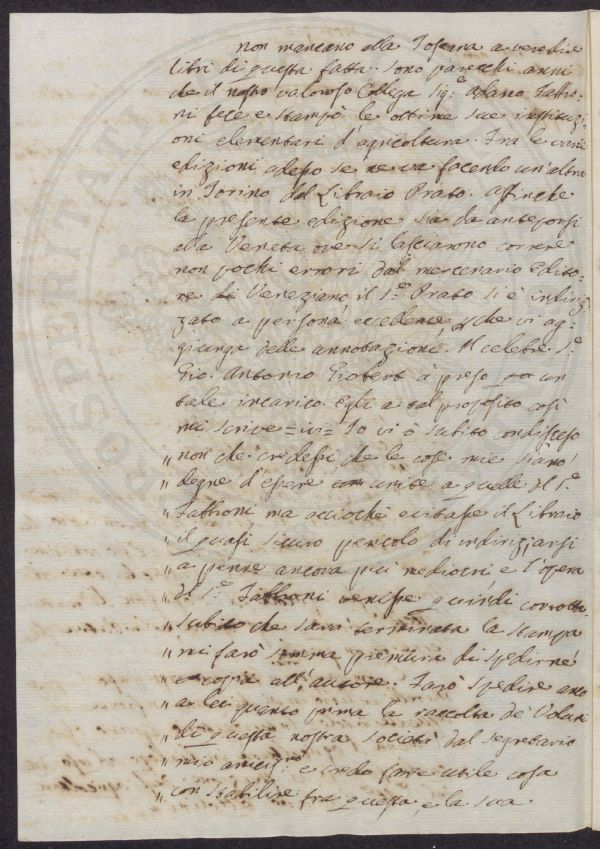 non mancano alla Toscana a vero dire
libri di questa fatta. Sono parecchi anni
che il nostro valoroso Collega Sig.e Adamo Fabbro=
ni fece e stampò le ottime sue instituzi=
oni elementari d'agricoltura. Tra le varie
edizioni adesso se ne va facendo un'altra
in Torino dal Libraio Prato. affinche
la presente edizione sia da anteporsi
alla Veneta ove si lasciarono correre
non pochi errori dal mercenario Edito=
re di Veneziano il S.e Prato si è indiriz=
zato a persona eccellente, che vi ag=
giunga delle annotazioni. Il celebre S.e
Gio. Antonio Giobert à preso un
tale incarico. Egli a tal proposito così
mi scrive = Io vi ò subito condisceso
" non che credessi che le cose mie siano
" degne d'essere unite a quelle del S.e
" Fabbroni, ma acciochè evitasse il Libraio
" il quasi sicuro pericolo di indirizzarsi
" a penne ancora più mediocri e l'opera
" del S.e Fabbroni venisse quindi corrotta
" Subito che sarà terminata la stampa
" mi farò somma premura di spedirne
" copia all'autore. Farò spedire anco
" a lei quanto prima la raccolta de' Volumi
" di questa nostra società dal segretario
" mio amicis.mo e credo fare utile cosa
" con stabilire fra questa, e la sua